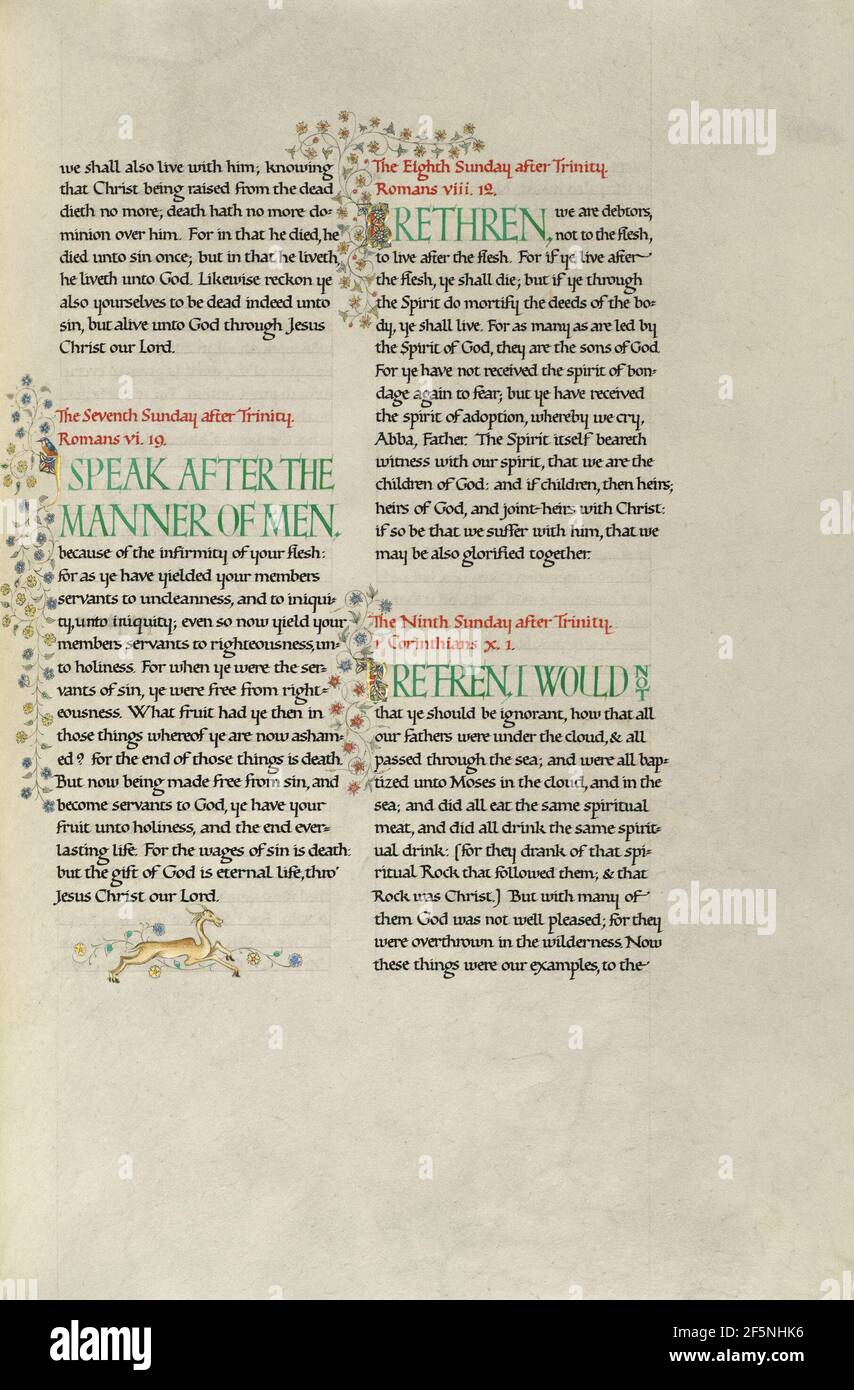 we shall also live with him; knowing
that Christ being raised from the dead
dieth no more; death hath no more do=
minion over him. For in that he died, he
died unto sin once; but in that he liveth,
he liveth unto God. Likewise reckon ye
also yourselves to be dead indeed unto
sin, but alive unto God through Jesus
Christ our Lord.
The Seventh Sunday after Trinity.
Romans vi. 19.
I SPEAK AFTER THE
MANNER OF MEN,
because of the infirmity of your flesh:
for as ye have yielded your members
servants to uncleanness, and to iniqui=
ty, unto iniquity; even so now yield your
members servants to righteousness, un=
to holiness. For when ye were the ser=
vants of sin, ye were free from right=
eousness. What fruit had ye then in
those things whereof ye are now asham=
ed? for the end of those things is death.
But now being made free from sin, and
become servants to God, ye have your
fruit unto holiness, and the end ever=
lasting life. For the wages of sin is death:
but the gift of God is eternal life, thro'
Jesus Christ our Lord.
The Eighth Sunday after Trinity.
Romans viii. 12.
BRETHREN, we are debtors,
not to the flesh,
to live after the flesh. For if ye live after
the flesh, ye shall die; but if ye through
the Spirit do mortify the deeds of the bo=
dy, ye shall live. For as many as are led by
the Spirit of God, they are the sons of God.
For ye have not received the spirit of bon=
dage again to fear; but ye have received
the spirit of adoption, whereby we cry,
Abba, Father. The Spirit itself beareth
witness with our spirit, that we are the
children of God: and if children, then heirs;
heirs of God, and joint=heirs with Christ:
if so be that we suffer with him, that we
may be also glorified together.
The Ninth Sunday after Trinity.
1 Corinthians x. 1.
BRETREN, I WOULD NOT
that ye should be ignorant, how that all
our fathers were under the cloud, & all
passed through the sea; and were all bap=
tized unto Moses in the cloud, and in the
sea; and did all eat the same spiritual
meat, and did all drink the same spirit=
ual drink: (for they drank of that spi=
ritual Rock that followed them; & that
Rock was Christ.) But with many of
them God was not well pleased; for they
were overthrown in the wilderness. Now
these things were our examples, to the
alamy
alamy
alamy
alamy
Image ID: 2F5NHK6
www.alamy.com